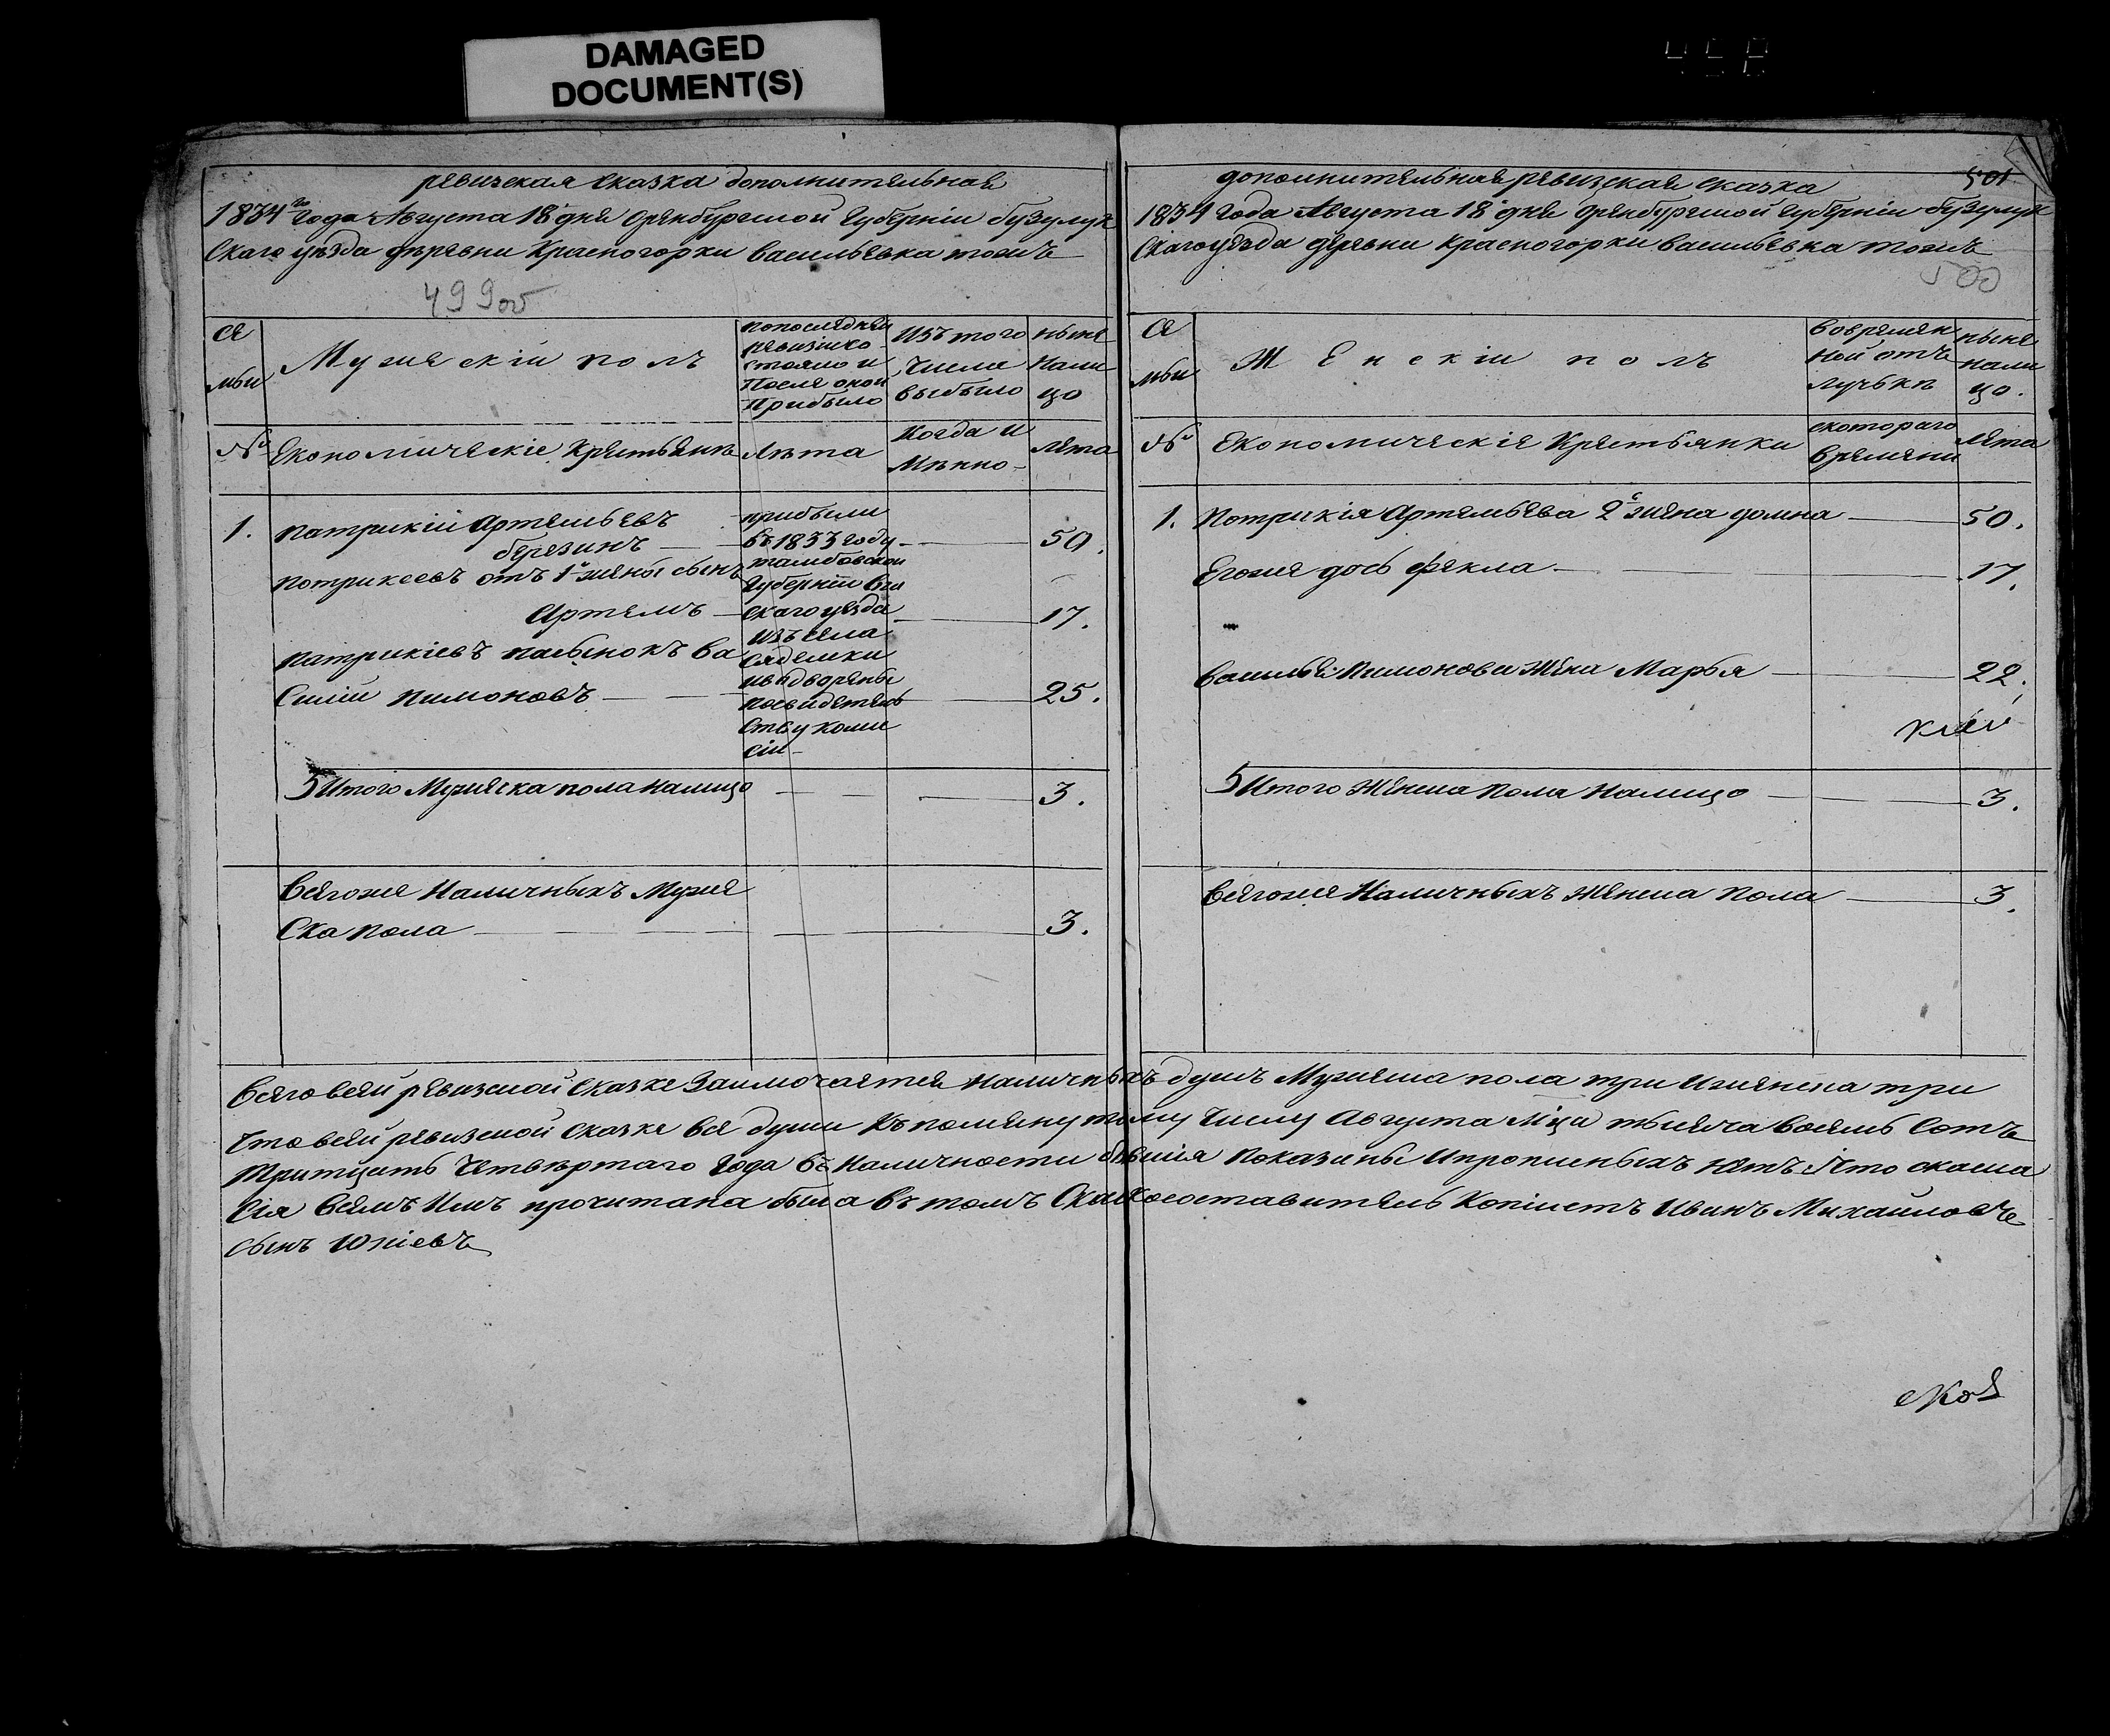 DAMAGED
DOCUMENT(S)
ревизская сказка дополнительная
1834го года Августа 18 дня Оренбургской Губернии бузулук
скаго уѣзда деревни Красногорки Васильевка тожъ
499об
Се
мьи
Мужескiй полъ
попоследней
ревизiи со
стояло и
После оной
Прибыло
Изъ того
числа
выбыло
ныне
Нали
цо
№
Економическiе Крестьяня
Лѣта
Когда и
Мѣнно
Лета
1.
патрикiй Артемьевъ
березинъ
50.
потрикеевъ отъ 1й жены сынъ
Артемъ
17.
патрикiевъ пасынокъ Ва
силiй пимоновъ
25.
прибыли
въ 1833 году
тамбовской
Губернiи
скаго уезда
изъ села
посвидетель
ству коми
сiи
5 Итого Мужеска пола налицо
3.
Всягоже Наличныхъ Муже
ска пола
3.
дополнительная ревизская сказка
501
1834 года Августа 18 дня Оренбургской Губернiи бузулук
скаго уезда деревни Красногорки Васильевка тожъ
500
Се
мьи
Женскiй полъ
вовремян
ной отъ
лучькѣ
ныне
нали
цо.
№
Економическiе Крестьянки
скотораго
времяни
Лета
1.
Потрикiя Артемьева 2я жена домна
50.
Егоже дочь фекла
17.
Василья Пимонова Жена Марья
22.
5 Итого Женска Пола Налицо
3.
Всягоже Наличныхъ женска Пола
3.
Всяго всей ревизской Сказке Заключается Наличныхъ душъ Мужеска пола три Иженска три
Что всей ревизской сказке все души Къ помянутому Числу Августа Мца тысяча восемь Сотъ
Тритцать Четвертаго Года въ Наличности бывшiя Показаны Ипрописныхъ нетъ Что сказка
Сiя Всемъ Имъ прочитана была въ томъ Сказкосоставитель Копiистъ Иванъ Михайловъ
сынъ